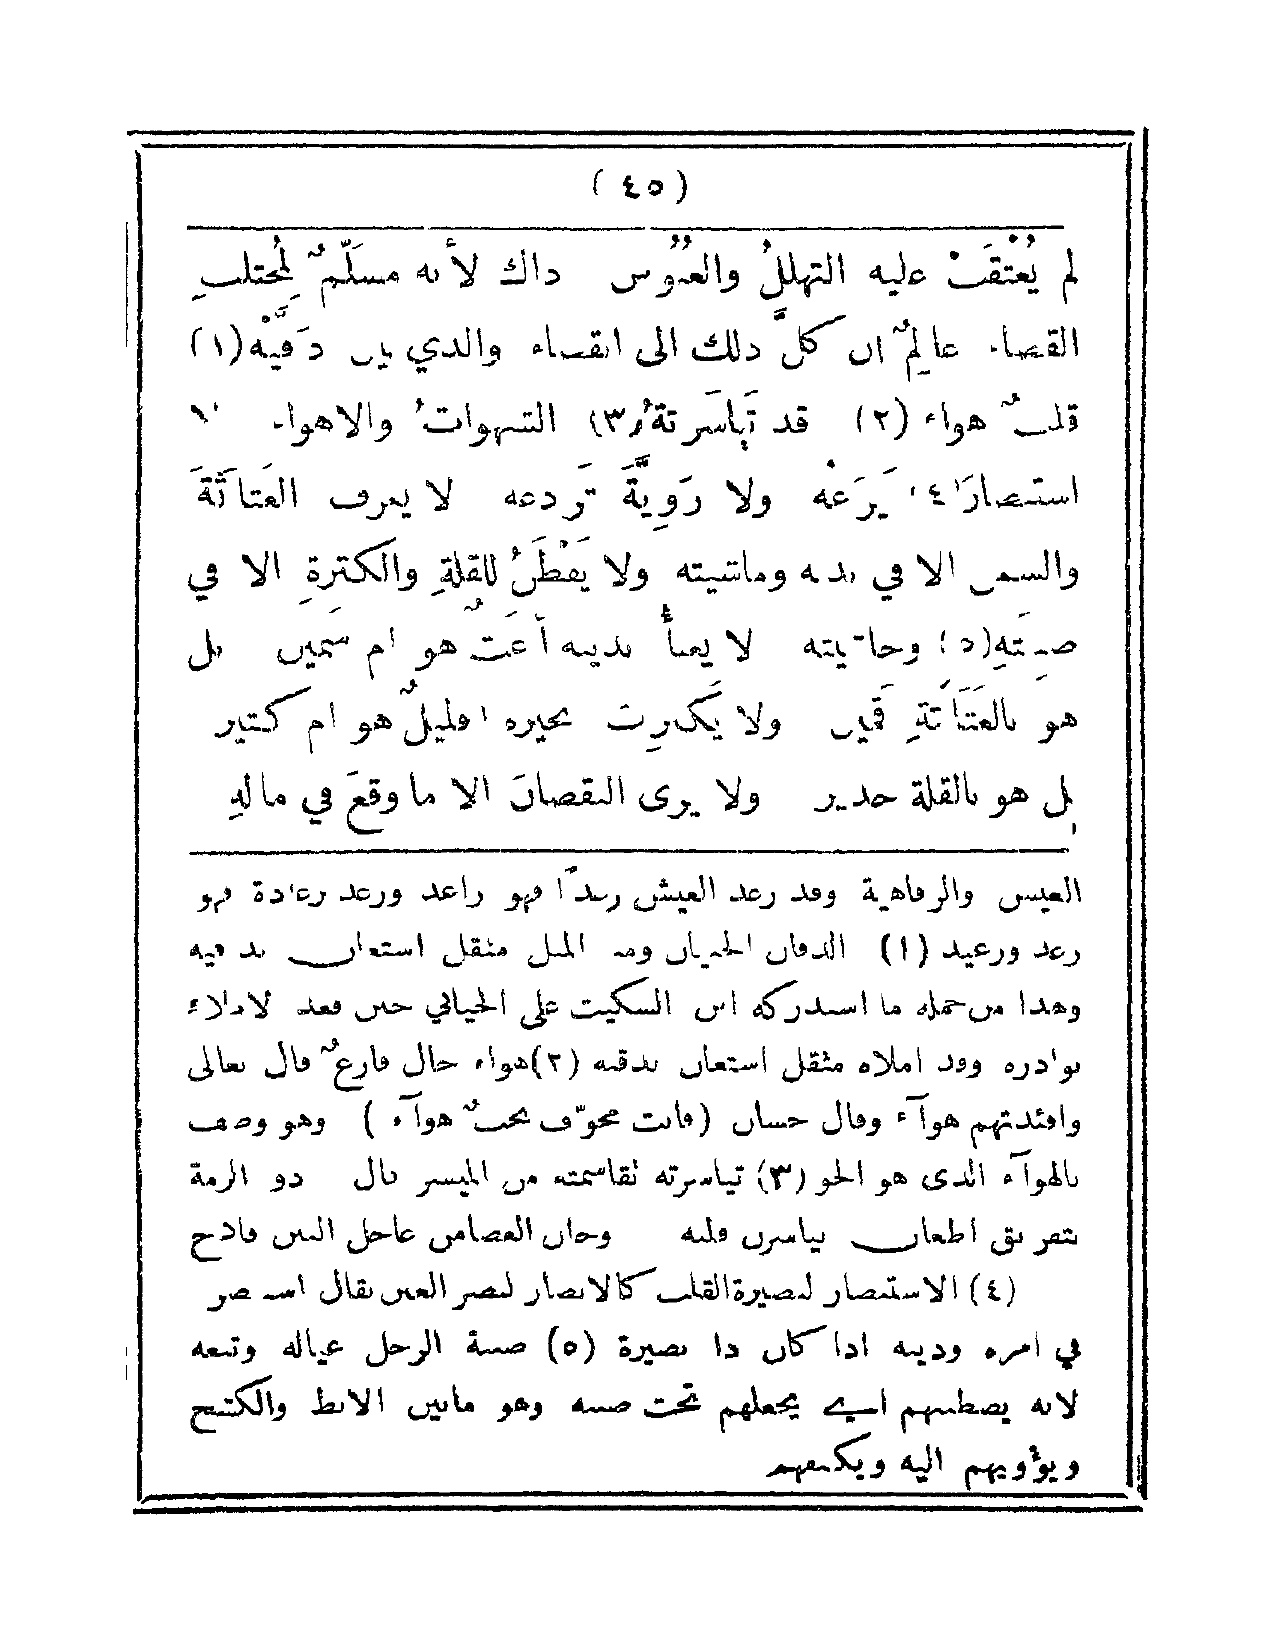 ( ٤٥ )
لم يُعْتَقَبْ عليه التهللُ والعُبُوس ذاك لأنه مسلّمٌ لمُجتلبِ
القضاء عالِمٌ ان كلَّ ذلك الى انقضاء والذي بين دَفَّيْه(١)
قلبٌ هواء (٢) قد تَيَاسَرَتهُ(٣) الشهواتُ والاهواء لا
استبصارَ(٤) يَزَعْه ولا رَوِيَّةَ تَردعه لا يعرف الغَثاثَةَ
والسمن الا في بدنه وماشيته ولا يَفْطَنُ للقلةِ والكثرةِ الا في
ضِبنَتِهِ(٥) وحاشيته لا يعبأ بدينه أغَثٌّ هو ام سَمين بل
هو بالغَثَاثَةِ قَمين ولا يَكترِث بخيره اقليلٌ هو ام كثير
بل هو بالقلة جدير ولا يرى النقصانَ الا ما وقعَ في مالهِ
العيش والرفاهية وقد رغد العيش رغداً فهو راغد ورغد رغادة فهو
رغد ورغيد (١) الدفان الجنبان ومنه المثل مثقل استعان بدفيه
وهذا من جمله ما استدركه ابن السكيت على اللحياني حين قعد لادلاء
نوادره وقد املاه مثقل استعان بدقنه (٢)هواء خال فارغٌ قال تعالى
وافئدتهم هوآء وقال حسان (فانت مجوّف نخبٌ هوآء ) وهو وصف
بالهوآء الذى هو الجو (٣) تياسرته تقاسمته من الميسر قال ذو الرمة
بتفريق اظعان تياسرن قلبه وخان العصا من عاجل البين قادح
(٤) الاستبصار لبصيرة القلب كالابصار لبصر العين يقال استبصر
في امره ودينه اذا كان ذا بصيرة (٥) ضبنة الرجل عياله وتبعه
لانه يضطبنهم اي يجعلهم تحت ضبنه وهو مابين الابط والكشح
ويؤويهم اليه ويكنفهم